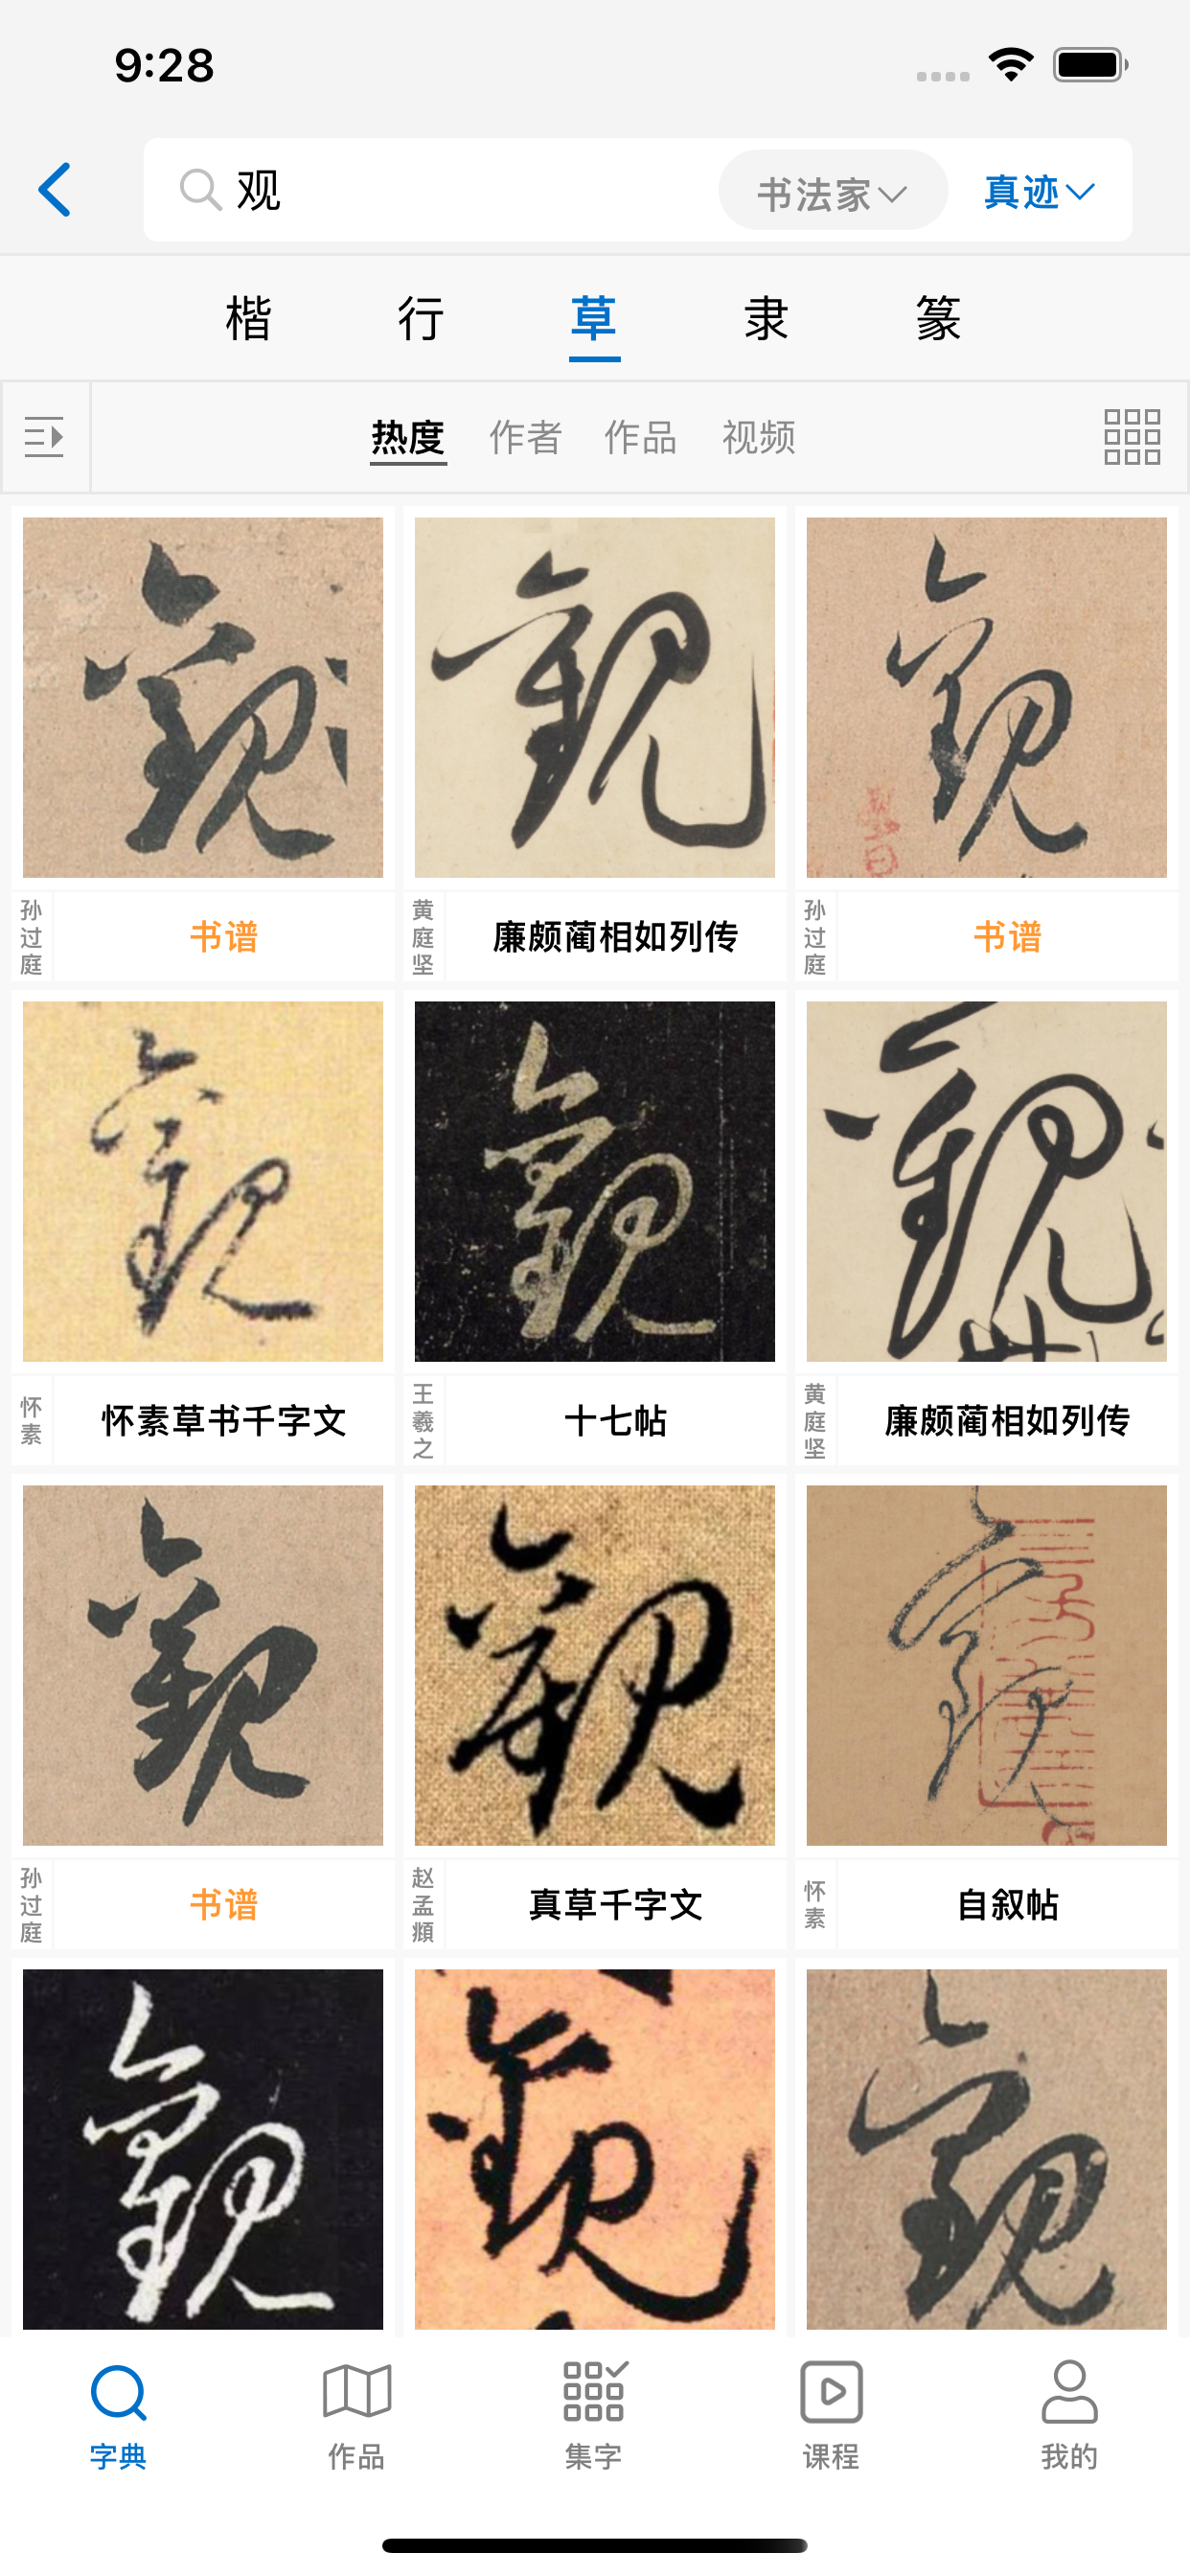 9:28
观 书法家 真迹
楷 行 草 隶 篆
热度 作者 作品 视频
觀 觀 觀
孙过庭 书谱 黄庭坚 廉颇蔺相如列传 孙过庭 书谱
觀 觀 觀
怀素 怀素草书千字文 王羲之 十七帖 黄庭坚 廉颇蔺相如列传
觀 觀 觀
孙过庭 书谱 赵孟頫 真草千字文 怀素 自叙帖
觀 觀 觀
字典 作品 集字 课程 我的